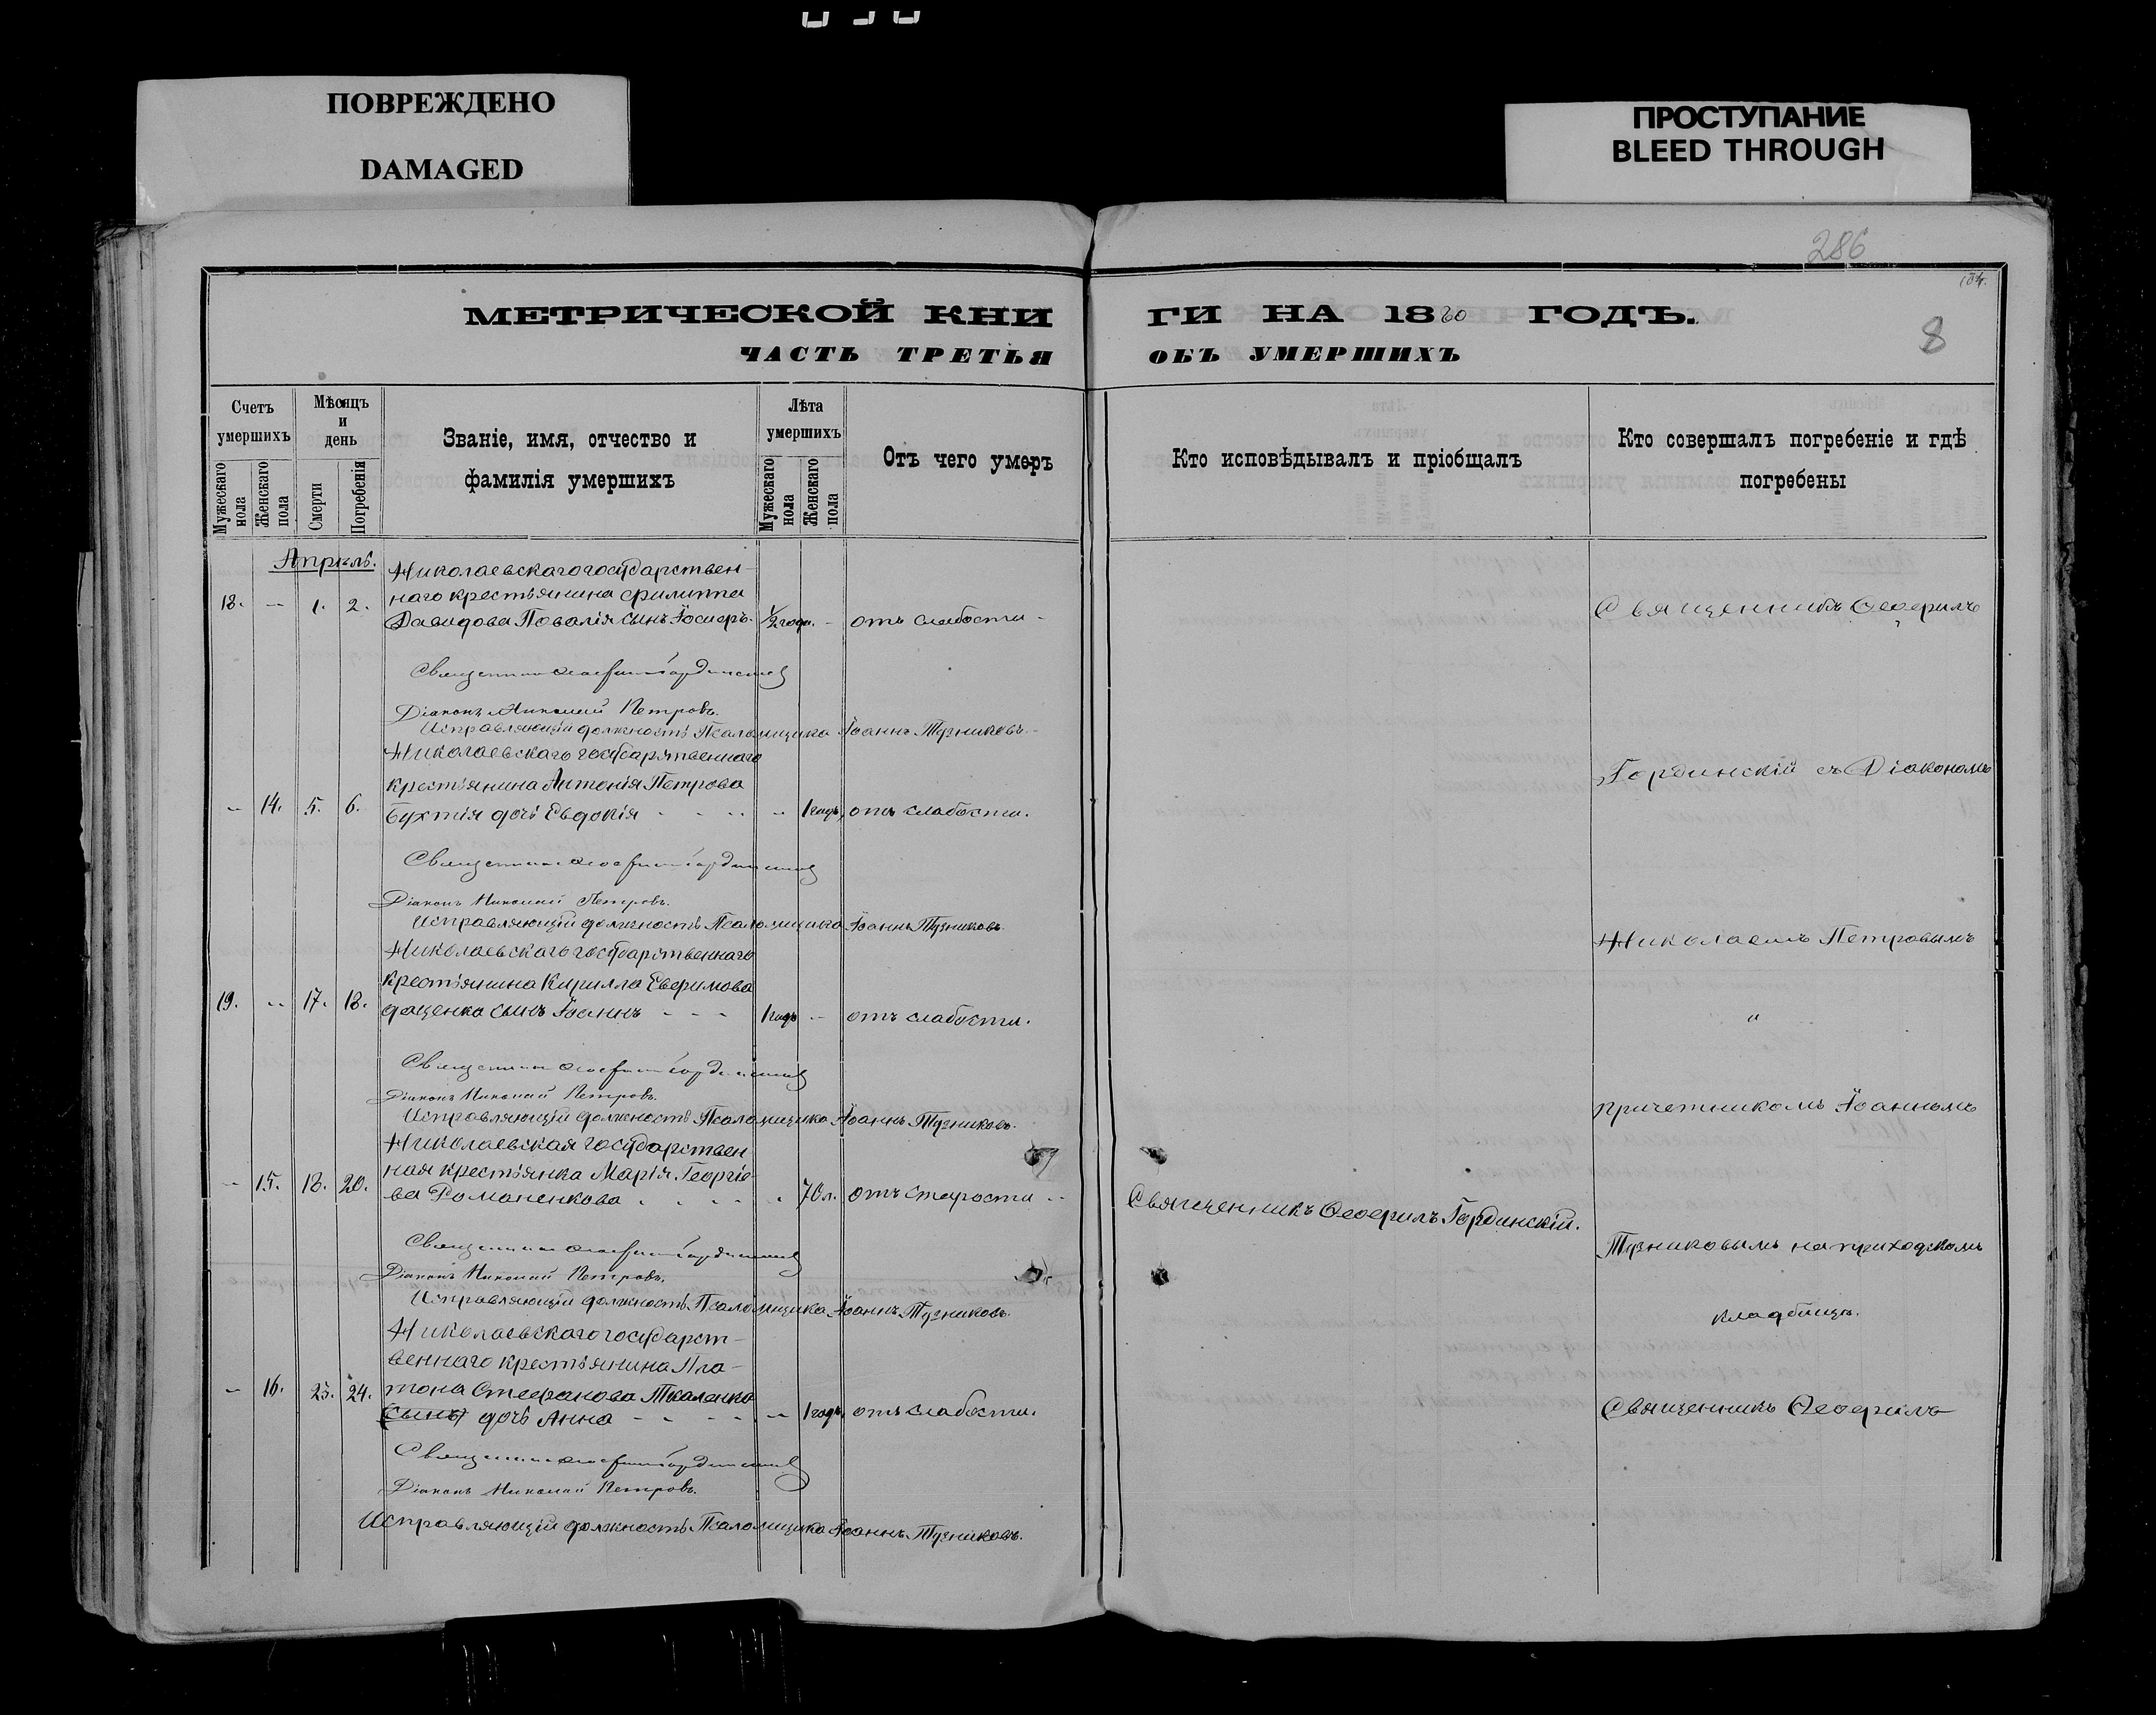 ПОВРЕЖДЕНО
DAMAGED
ПРОСТУПАНИЕ
BLEED THROUGH
286
МЕТРИЧЕСКОЙ КНИ
ГИ НА 18 ГОДЪ.
8
ЧАСТЬ ТРЕТЬЯ
ОБЪ УМЕРШИХЪ
Счетъ умершихъ
Мужескаго пола
Женскаго пола
Мѣсяцъ и день
Смерти
Погребенія
Званіе, имя, отчество и
фамилія умершихъ
Лѣта умершихъ
Мужескаго пола
Женскаго пола
Отъ чего умеръ
Кто исповѣдывалъ и пріобщалъ
Кто совершалъ погребеніе и гдѣ
погребены
Апрѣль.
Николаевскаго государствен-
18. - 1. 2. наго крестьянина Филиппа
Давидова Повалія сынъ Іосифъ. 1/2 года. - отъ слабости -
Священникъ Ѳеофилъ Гординскій
Діаконъ Николай Петровъ.
Исправляющій должность Псаломщика Іоаннъ Тузниковъ.
Николаевскаго государственнаго
крестьянина Антонія Петрова
- 14. 5. 6. Бухтія дочь Евдокія - - - 1 годъ, отъ слабости.
Священникъ Ѳеофилъ Гординскій
Діаконъ Николай Петровъ.
Исправляющій должность Псаломщика Іоаннъ Тузниковъ
Николаевскаго государственнаго
крестьянина Кирилла Евфимова
19. - 17. 18. даценка сынъ Іоаннъ - - - 1 годъ - отъ слабости.
Священникъ Ѳеофилъ Гординскій
Діаконъ Николай Петровъ.
Исправляющій должность Псаломщика Іоаннъ Тузниковъ.
Николаевская государствен
ная крестьянка Марія Георгіе-
- 15. 18. 20. ва Романенкова - - - 70 л. отъ старости -
Священникъ Ѳеофилъ Гординскій
Діаконъ Николай Петровъ.
Исправляющій должность Псаломщика Іоаннъ Тузниковъ.
Николаевскаго государст-
веннаго крестьянина Пла-
- 16. 23. 24. тона Стефанова Ткаленка
сынъ дочь Анна - - - - 1 годъ, отъ слабости.
Священникъ Ѳеофилъ Гординскій
Діаконъ Николай Петровъ.
Исправляющій должность Псаломщика Іоаннъ Тузниковъ.
Священникъ Ѳеофилъ Гординскій.
Священникъ Ѳеофилъ
Гординскій съ Діакономъ
Николаемъ Петровымъ
"
причетникомъ Іоанномъ
Тузниковымъ на приходскомъ
кладбищѣ.
Священникъ Ѳеофилъ